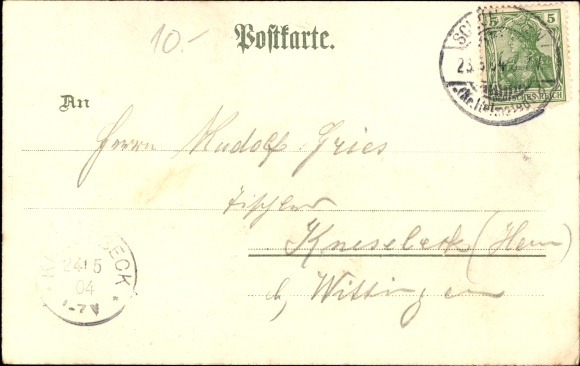 10.-
Postkarte.
5 5
23.5.04
DEUTSCHES REICH
(Kr. Helmstedt)
An
Herrn Rudolf Gries
Tischler
Knesebeck (Hann)
b/ Wittingen
BECK
24/5
04
7-7V